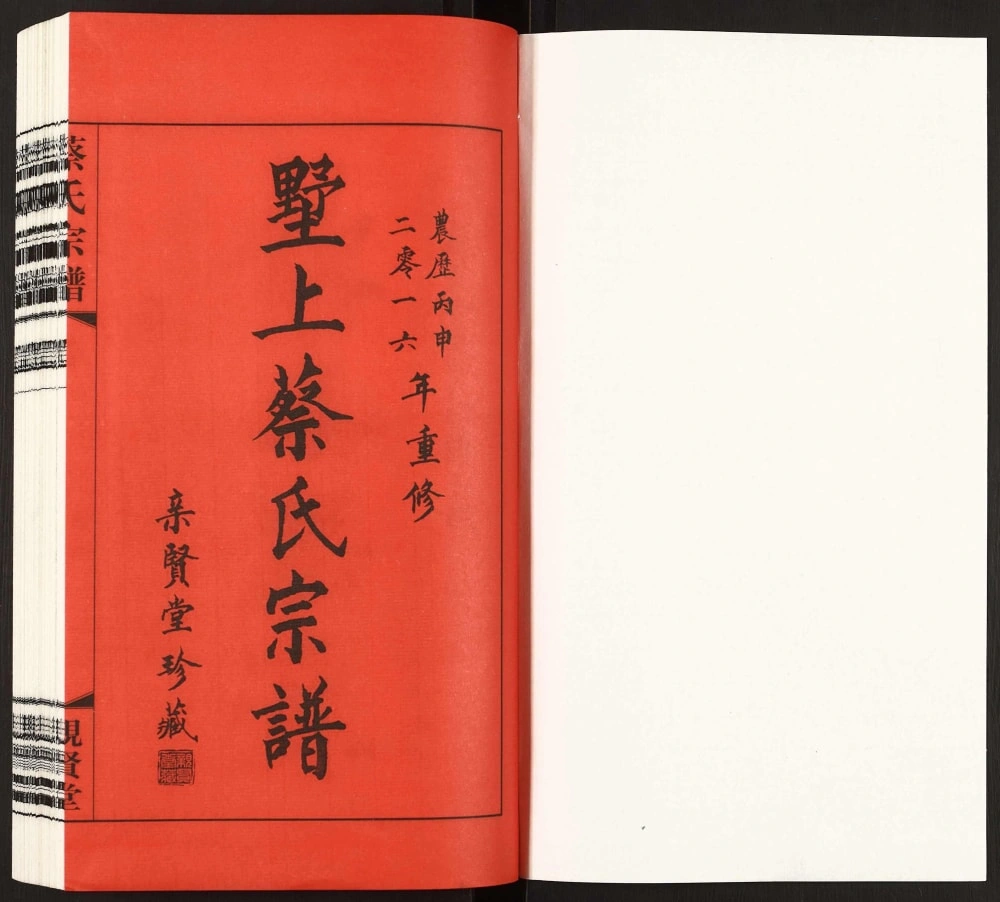 農歷丙申
二零一六
年重修
墅上蔡氏宗譜
亲賢堂珍藏
蔡氏宗譜
親賢堂